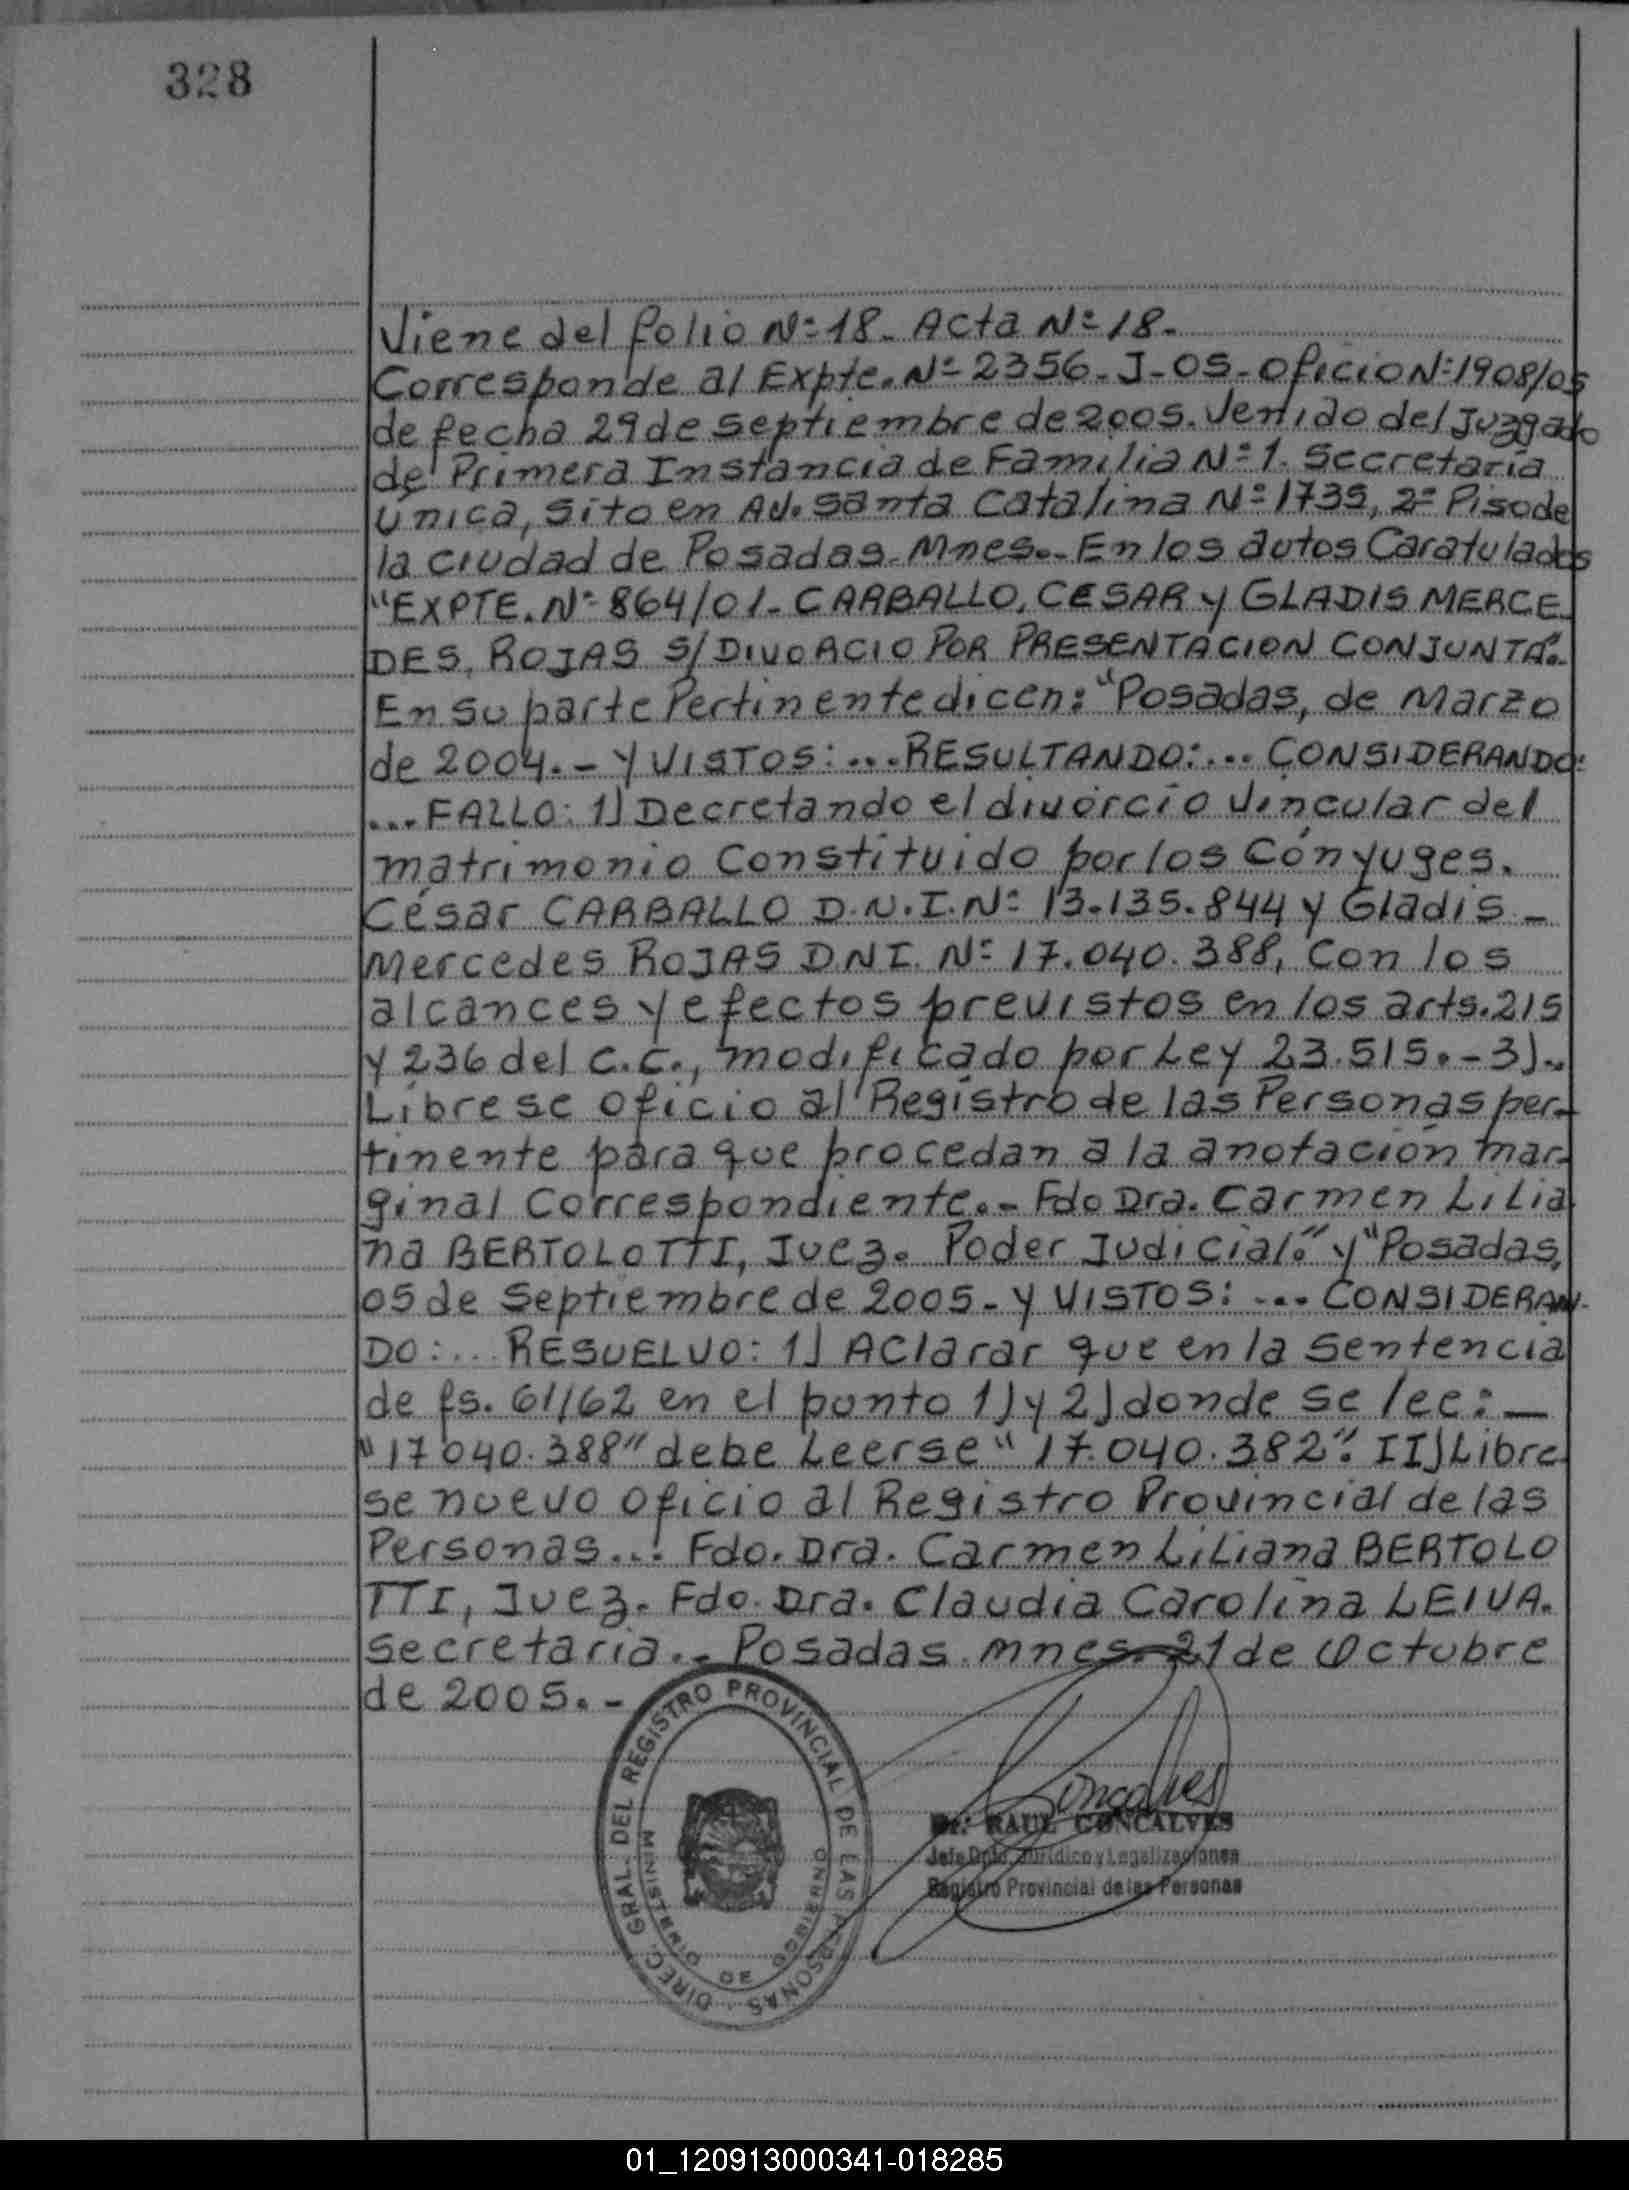 328
Viene del folio Nº 18. Acta Nº 18.
Corresponde al Expte. Nº 2356-J-05-oficio Nº 1908/05
de fecha 29 de septiembre de 2005. Venido del Juzgado
de Primera Instancia de Familia Nº 1. Secretaría
Única, sito en Av. Santa Catalina Nº 1735, 2º Piso de
la ciudad de Posadas. Mnes.- En los autos Caratulados
"EXPTE. Nº 864/01- CARBALLO, CESAR y GLADIS MERCE
DES, ROJAS S/ DIVORCIO POR PRESENTACION CONJUNTA".
En su parte Pertinente dicen: "Posadas, de Marzo
de 2004.- y VISTOS:... RESULTANDO:... CONSIDERANDO:
...FALLO: 1) Decretando el divorcio vincular del
matrimonio Constituido por los Cónyuges.
César CARBALLO D.N.I. Nº 13.135.844 y Gladis -
Mercedes ROJAS D.N.I. Nº 17.040.388, con los
alcances y efectos previstos en los arts. 215
y 236 del C.C., modificado por Ley 23.515.-3)..
Líbrese oficio al Registro de las Personas per-
tinente para que procedan a la anotación mar-
ginal correspondiente.- Fdo Dra. Carmen Lilia
na BERTOLOTTI, Juez. Poder Judicial." y "Posadas,
05 de Septiembre de 2005.- y VISTOS:... CONSIDERAN-
DO:... RESUELVO: 1) Aclarar que en la sentencia
de fs. 61/62 en el punto 1) y 2) donde se lee: —
"17040.388" debe Leerse "17.040.382". II) Libre
se nuevo oficio al Registro Provincial de las
Personas... Fdo. Dra. Carmen Liliana BERTOLO
TTI, Juez. Fdo. Dra. Claudia Carolina LEIVA.
Secretaria.- Posadas. Mnes. 21 de Octubre
de 2005.-
DIREC. GRAL. DEL REGISTRO PROVINCIAL DE LAS PERSONAS
MINISTERIO DE GOBIERNO
Goncalves
Dr. RAUL GONCALVES
Jefe Dpto. Jurídico y Legalizaciones
Registro Provincial de las Personas
01_120913000341-018285